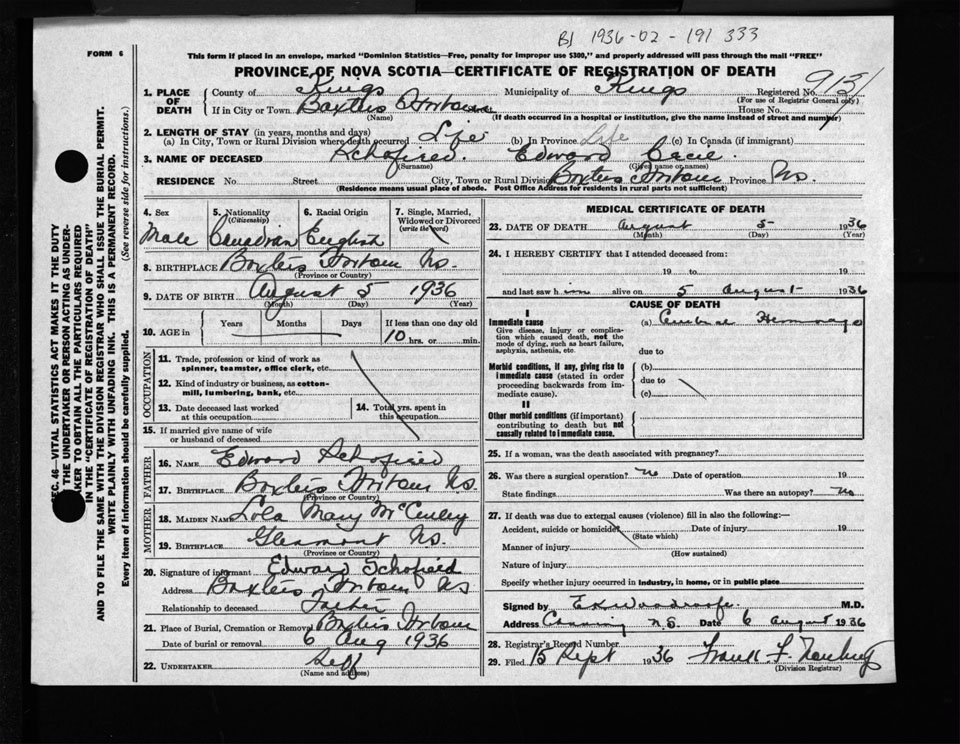 BJ 1936-02-191 333
FORM 6
This form if placed in an envelope, marked "Dominion Statistics—Free, penalty for improper use $300," and properly addressed will pass through the mail "FREE"
PROVINCE OF NOVA SCOTIA—CERTIFICATE OF REGISTRATION OF DEATH
1. PLACE OF DEATH County of Kings Municipality of Kings Registered No.
(For use of Registrar General only)
If in City or Town Baxters Harbour House No.
(Name) (If death occurred in a hospital or institution, give the name instead of street and number)
2. LENGTH OF STAY (in years, months and days)
(a) In City, Town or Rural Division where death occurred Life (b) In Province Life (c) In Canada (if immigrant)
3. NAME OF DECEASED Schofield. Edward
(Surname) (Given name or names)
RESIDENCE No Street City, Town or Rural Division Baxters Harbour Province Ns.
(Residence means usual place of abode. Post Office Address for residents in rural parts not sufficient)
4. Sex 5. Nationality (Citizenship) 6. Racial Origin 7. Single, Married, Widowed or Divorced (write the word)
Male Canadian English
8. BIRTHPLACE Baxters Harbour Ns.
(Province or Country)
9. DATE OF BIRTH August 5 1936
(Month) (Day) (Year)
10. AGE in Years Months Days If less than one day old
10 hrs. or min.
OCCUPATION
11. Trade, profession or kind of work as spinner, teamster, office clerk, etc.
12. Kind of industry or business, as cotton-mill, lumbering, bank, etc.
13. Date deceased last worked at this occupation
14. Total yrs. spent in this occupation
15. If married give name of wife or husband of deceased
FATHER
16. NAME Edward Schofield
17. BIRTHPLACE Baxters Harbour Ns.
(Province or Country)
MOTHER
18. MAIDEN NAME Lola Mary McCulley
19. BIRTHPLACE Glenmont Ns.
(Province or Country)
20. Signature of informant Edward Schofield
Address Baxters Harbour NS
Relationship to deceased Father
21. Place of Burial, Cremation or Removal Baxters Harbour
Date of burial or removal 6 Aug 1936
22. UNDERTAKER Self
(Name and address)
MEDICAL CERTIFICATE OF DEATH
23. DATE OF DEATH August 5 1936
(Month) (Day) (Year)
24. I HEREBY CERTIFY that I attended deceased from:
19 to 19
and last saw him alive on 5 August 1936
CAUSE OF DEATH
I
Immediate cause (a) Cerebral Hemorrage
Give disease, injury or complication which caused death, not the mode of dying, such as heart failure, asphyxia, asthenia, etc.
due to
Morbid conditions, if any, giving rise to immediate cause (stated in order proceeding backwards from immediate cause).
(b)
due to
(c)
II
Other morbid conditions (if important) contributing to death but not causally related to immediate cause.
25. If a woman, was the death associated with pregnancy?
26. Was there a surgical operation? no Date of operation 19
State findings Was there an autopsy? no
27. If death was due to external causes (violence) fill in also the following:—
Accident, suicide or homicide Date of injury 19
(State which)
Manner of injury
(How sustained)
Nature of injury
Specify whether injury occurred in industry, in home, or in public place
Signed by M.D.
Address Canning N.S. Date 6 August 1936
28. Registrar's Record Number
29. Filed 15 Sept 1936 Frank F.
(Division Registrar)
SEC. 46—VITAL STATISTICS ACT MAKES IT THE DUTY
OF THE UNDERTAKER OR PERSON ACTING AS UNDER-
TAKER TO OBTAIN ALL THE PARTICULARS REQUIRED
IN THE "CERTIFICATE OF REGISTRATION OF DEATH"
AND TO FILE THE SAME WITH THE DIVISION REGISTRAR WHO SHALL ISSUE THE BURIAL PERMIT.
WRITE PLAINLY WITH UNFADING INK. THIS IS A PERMANENT RECORD.
Every item of information should be carefully supplied. (See reverse side for instructions.)